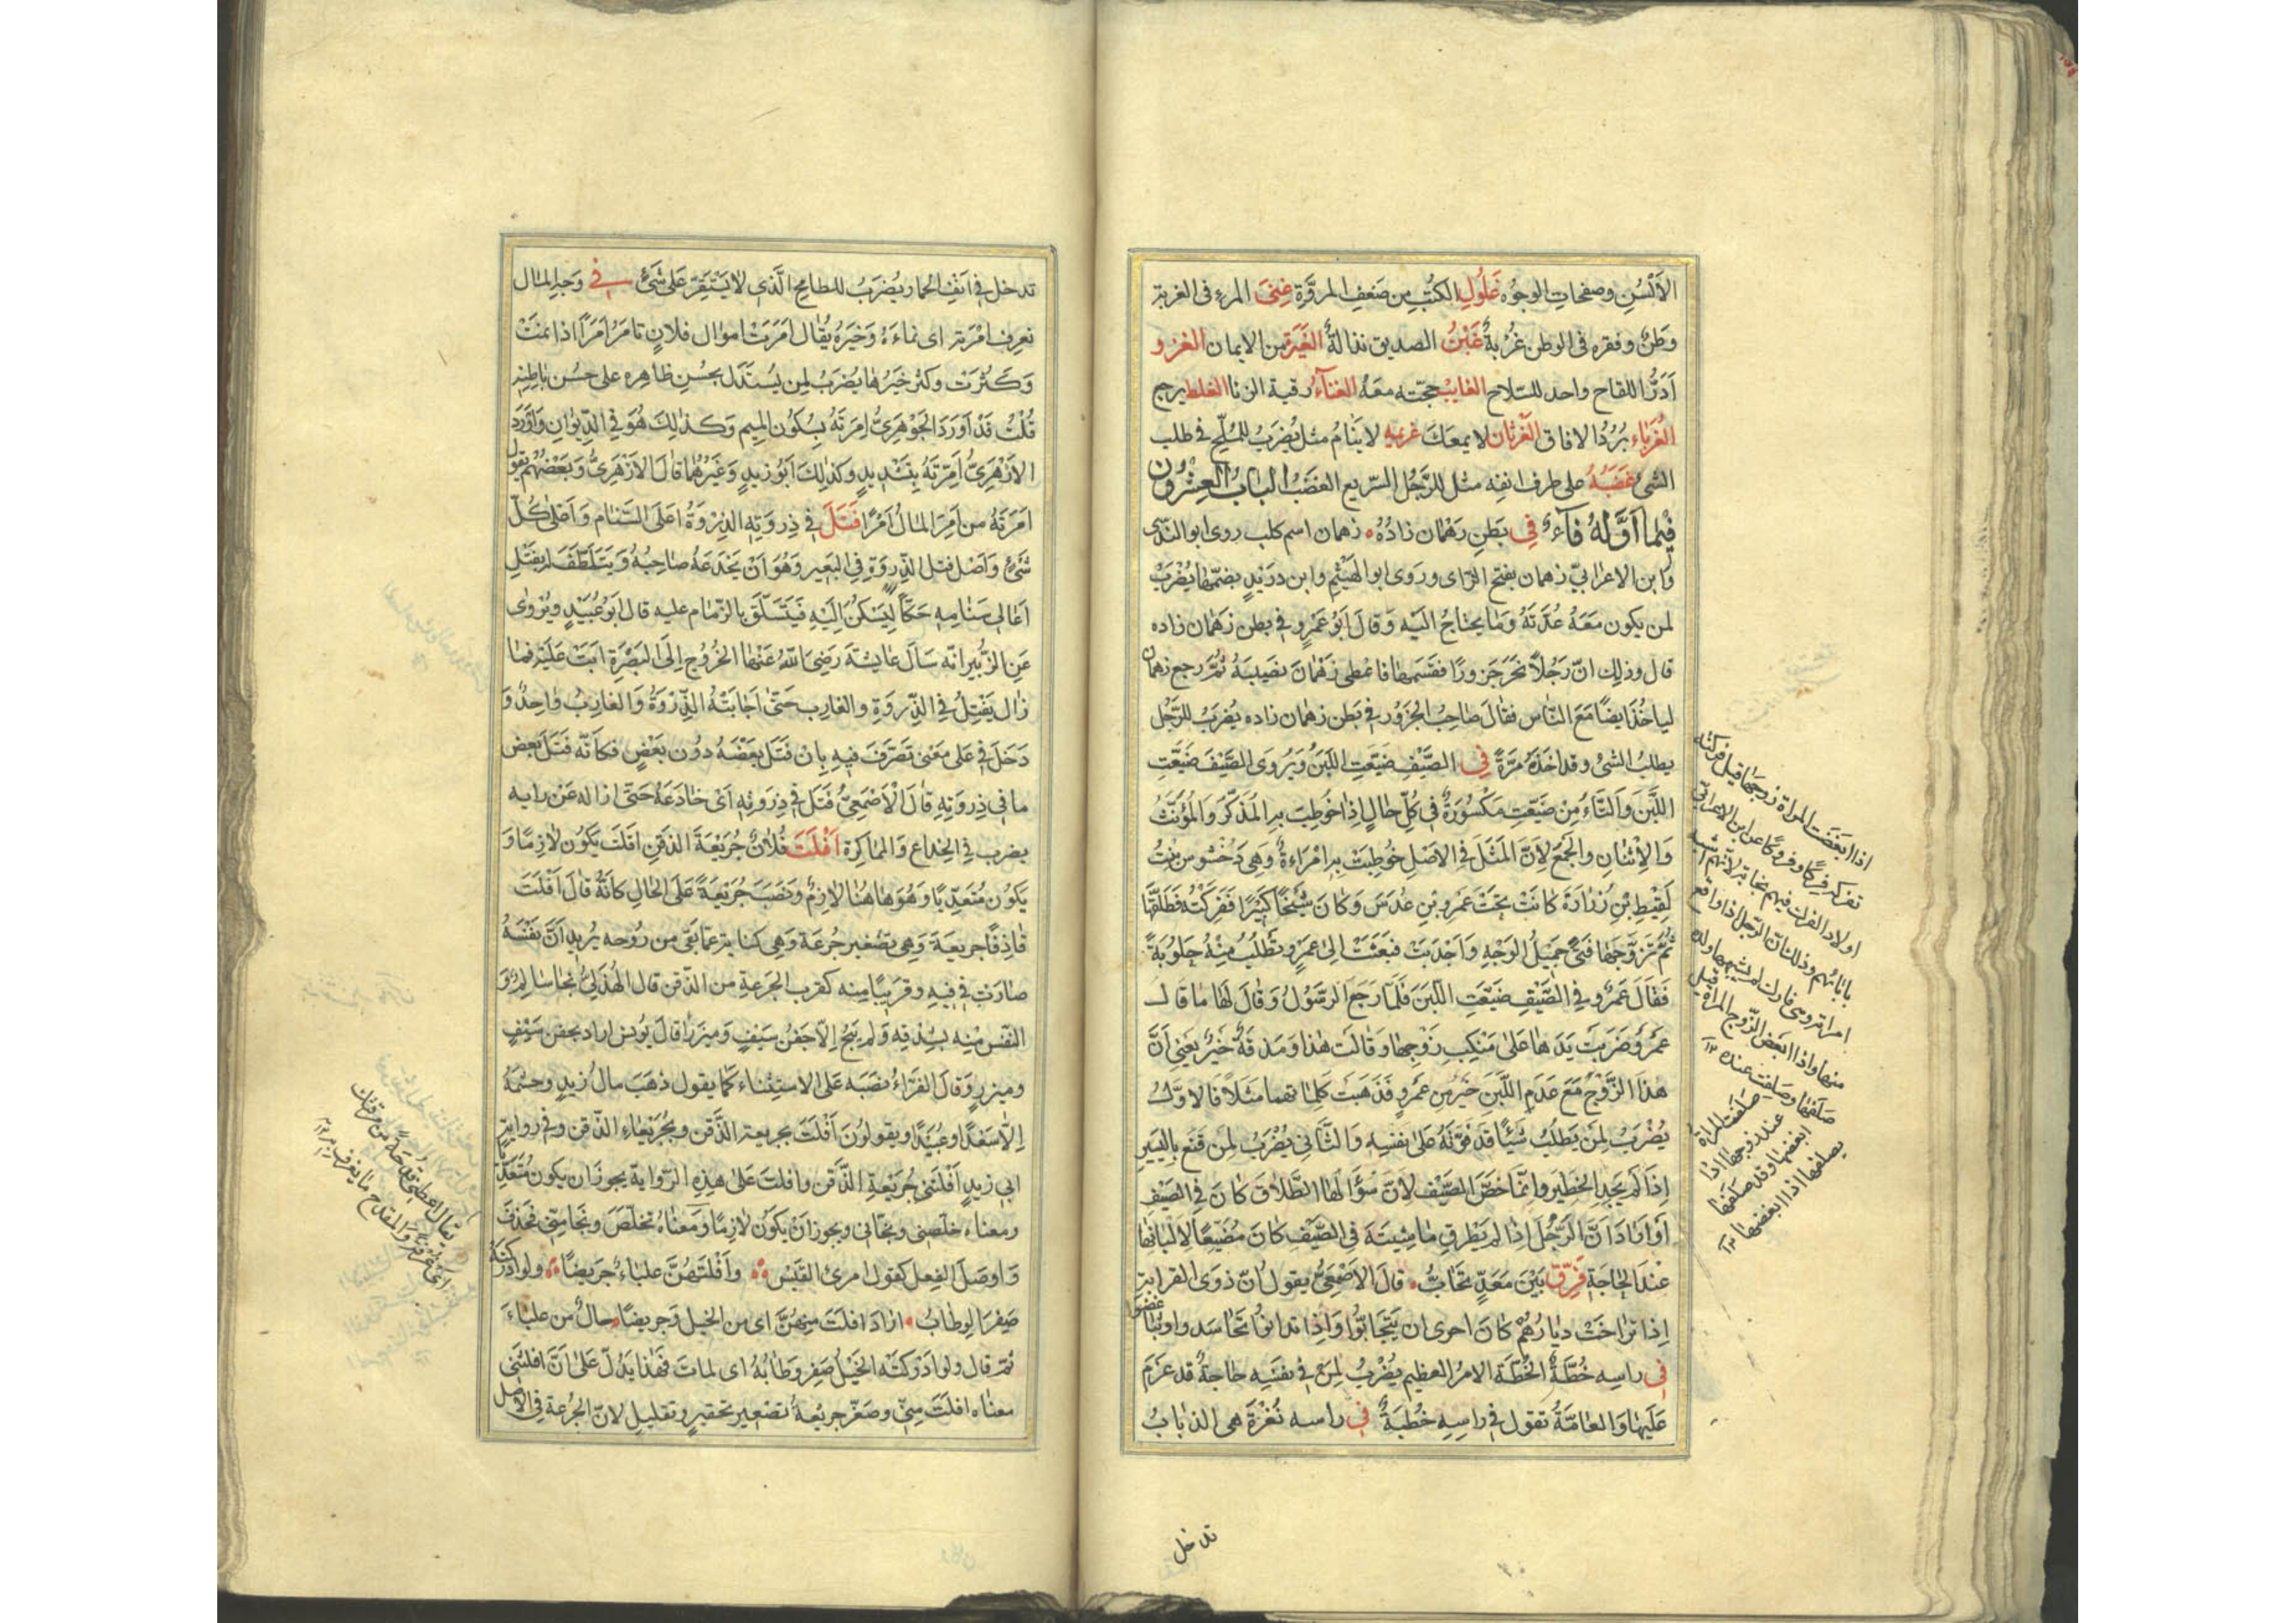 الألسن وصفحات الوجوه غلول الكتب من ضعف المروة غنى المرء فى الغربة
وطن وفقره فى الوطن غربة غبن الصديق نذالة الغيرة من الايمان الغزو
أدر اللقاح واحد للسلاح الغايب حجته معه الغناء رقية الزنا الغلط يرجع
الغرباء برد الافاق الغرثان لا يمعك غريم لا ينام مثل يضرب للملح فى طلب
الشئ غضبه على طرف انفه مثل للرجل السريع الغضب الباب العشرون
فيما أوله فاء فى بطن زهمان زاده زهمان اسم كلب روى ابو الندى
وابن الاعرابي زهمان بفتح الزاى وروى ابو الهيثم وابن دريد بضمها يضرب
لمن يكون معه عدته وما يحتاج اليه وقال ابو عمرو فى بطن زهمان زاده
قال وذلك ان رجلا نحر جزورا فقسمها فاعطى زهمان نصيبه ثم رجع زهمان
لياخذ ايضا مع الناس فقال صاحب الجزور فى بطن زهمان زاده يضرب للرجل
يطلب الشئ وقد اخذه مرة فى الصيف ضيعت اللبن ويروى الصيف ضيعت
اللبن والتاء من ضيعت مكسورة فى كل حال إذا خوطب به المذكر والمؤنث
والاثنان والجمع لأن المثل فى الاصل خوطبت به امراءة وهى دختنوس بنت
لقيط بن زرارة كانت تحت عمرو بن عدس وكان شيخا كبيرا ففركته فطلقها
ثم تزوجها فتى جميل الوجه واجدبت فبعثت الى عمرو تطلب منه حلوبة
فقال عمرو فى الصيف ضيعت اللبن فلما رجع الرسول وقال لها ما قال
عمرو ضربت يدها على منكب زوجها وقالت هذا ومذقة خير يعنى أن
هذا الزوج مع عدم اللبن خير من عمرو فذهبت كلماتهما مثلا فالاول
يضرب لمن يطلب شيئا قد فوته على نفسه والثانى يضرب لمن قنع باليسير
إذا لم يجد الخطير وانما خص الصيف لأن سؤالها الطلاق كان فى الصيف
أو اراد أن الرجل إذا لم يطرق ماشيته فى الصيف كان مضيعا لالبانها
عند الحاجة فرق بين معد تحاب قال الاصمعى يقول ان ذوى القرابة
إذا تراخت ديارهم كان احرى ان يتحابوا وإذا تدانوا تحاسدوا وتباغضوا
فى راسه خطة الخطة الامر العظيم يضرب لمن فى نفسه حاجة قد عزم
عليها والعامة تقول فى راسه خطبة فى راسه نغرة هى الذباب
اذا ابغضت المراة زوجها قيل فركته
تفركه فركا وفروكا عن ابن الاعرابى
اولاد الفرك فيهم نجابة لانهم اشبه
بابائهم وذلك ان الرجل اذا واقع
امراته وهى فارك لم يشبهها ولده
منها واذا ابغض الزوج المراة قيل
صلفها وصلفت عنده ١٢
صلفت المراة
عند زوجها اذا
ابغضها وقد صلفها
يصلفها اذا ابغضها ١٢
تدخل
تدخل فى انف الحمار يضرب للطامح الذى لا يستقر على شئ فى وجه المال
تعرف امرته اى نماءه وخيره يقال امرت اموال فلان تامر أمرا اذا نمت
وكثرت وكثر خيرها يضرب لمن يستدل بحسن ظاهره على حسن باطنه
قلت قد أورد الجوهرى إمرته بسكون الميم وكذلك هو فى الديوان وأورد
الازهرى أمرته بتشديد وكذلك ابو زيد وغيرهما قال الازهرى وبعضهم يقول
أمرته من أمر المال أمرا فتل فى ذروته الذروة اعلى السنام واعلى كل
شئ وأصل فتل الذروة فى البعير وهو أن يخدعه صاحبه ويتلطف له بفتل
اعالى سنامه حكا ليسكن إليه فيتسلق بالزمام عليه قال ابو عبيد ويروى
عن الزبير انه سأل عايشة رضى الله عنها الخروج الى البصرة ابت عليه فما
زال يفتل فى الذروة والغارب حتى اجابته الذروة والغارب واحد و
دخل فى على معنى تصرف فيه بان فتل بعضه دون بعض فكأنه فتل بعض
ما فى ذروته قال الاصمعى فتل فى ذروته أى خادعه حتى ازاله عن رايه
يضرب فى الخداع والمماكرة أفلت فلان جريعة الذقن افلت يكون لازما و
يكون متعديا وهو هاهنا لازم ونصب جريعة على الحال كأنه قال أفلت
قاذفا جريعة وهى تصغير جرعة وهى كناية عما بقى من روحه يريد أن نفسه
صارت فى فيه وقريبا منه كقرب الجرعة من الذقن قال الهذلى نجا سالم و
النفس منه بشدقه ولم ينج إلا جفن سيف وميزرا قال يونس اراد بجفن سيف
وميزر وقال الفراء نصبه على الاستثناء كما يقول ذهب مال زيد وحشمه
إلا سعدا وعبيدا ويقولون أفلت بجريعة الذقن وبجريعاء الذقن وفى رواية
ابى زيد أفلتنى جريعة الذقن وافلت على هذه الرواية يجوز ان يكون متعديا
ومعناه خلصنى ونجانى ويجوز ان يكون لازما ومعناه تخلص ونجا منى فحذف
وأوصل الفعل كقول امرئ القيس وأفلتهن علباء جريضا ولو ادركنه
صفر الوطاب اراد افلت منهن اى من الخيل وجريضا حال من علباء
ثم قال ولو ادركته الخيل صفر وطابه اى لمات فهذا يدل على أن افلتنى
معناه افلت منى وصغر جريعة تصغير تحقير وتقليل لان الجرعة فى الاصل
يقال اعطنى قدحة من مرقتك
أى غرفة والمقدح ما يغرف به ١٢